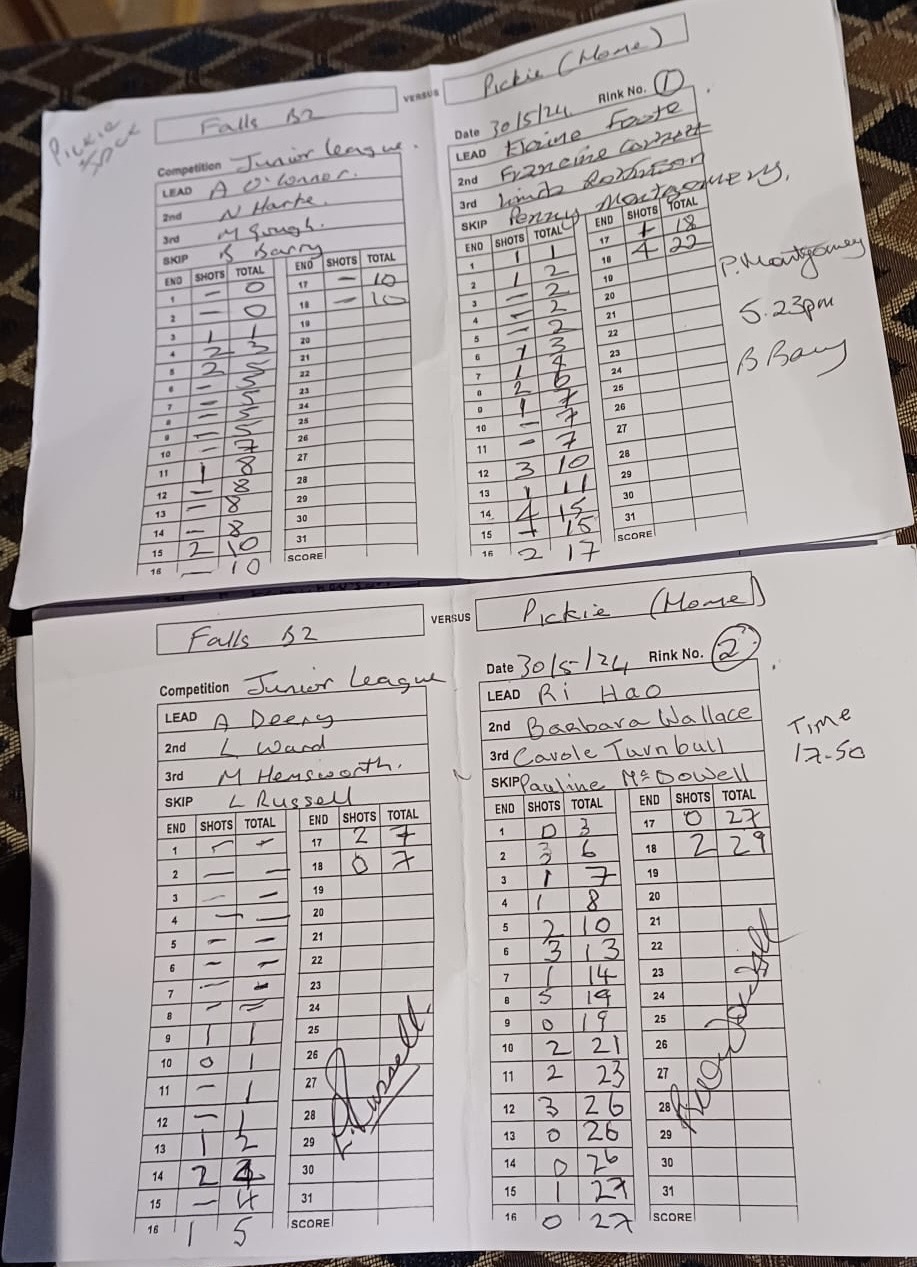 Pickie
VERSUS
Falls B2
Pickie (Home)
Competition Junior League.
LEAD A O'Connor.
2nd N Harte.
3rd M Gough.
SKIP B Barry
END SHOTS TOTAL
1 — 0
2 — 0
3 1 1
4 2 3
5 2 5
6 — 5
7 — 5
8 — 5
9 — 5
10 — 7
11 1 8
12 — 8
13 — 8
14 — 8
15 2 10
16 — 10
END SHOTS TOTAL
17 — 10
18 — 10
19
20
21
22
23
24
25
26
27
28
29
30
31
SCORE
Date 30/5/24 Rink No. 1
LEAD Elaine Foote
2nd Francine
3rd Linda Robinson
SKIP Penny Montgomery.
END SHOTS TOTAL
1 1 1
2 1 2
3 — 2
4 — 2
5 — 2
6 1 3
7 1 4
8 2 6
9 1 7
10 — 7
11 — 7
12 3 10
13 1 11
14 4 15
15 + 15
16 2 17
END SHOTS TOTAL
17 1 18
18 4 22
19
20
21
22
23
24
25
26
27
28
29
30
31
SCORE
P. Montgomery
5.23pm
B Barry
VERSUS
Falls B2
Pickie (Home)
Competition Junior League
LEAD A Deeny
2nd L Ward
3rd M Hemsworth.
SKIP L Russell
END SHOTS TOTAL
1 — —
2 — —
3 — —
4 — —
5 — —
6 — —
7 — —
8 — —
9 1 1
10 0 1
11 — 1
12 — 1
13 1 2
14 2 4
15 — 4
16 1 5
END SHOTS TOTAL
17 2 7
18 0 7
19
20
21
22
23
24
25
26
27
28
29
30
31
SCORE
L. Russell
Date 30/5/24 Rink No. 2
LEAD Ri Hao
2nd Barbara Wallace
3rd Carole Turnbull
SKIP Pauline McDowell
END SHOTS TOTAL
1 0 3
2 3 6
3 1 7
4 1 8
5 2 10
6 3 13
7 1 14
8 5 19
9 0 19
10 2 21
11 2 23
12 3 26
13 0 26
14 0 26
15 1 27
16 0 27
END SHOTS TOTAL
17 0 27
18 2 29
19
20
21
22
23
24
25
26
27
28
29
30
31
SCORE
Time
17-50